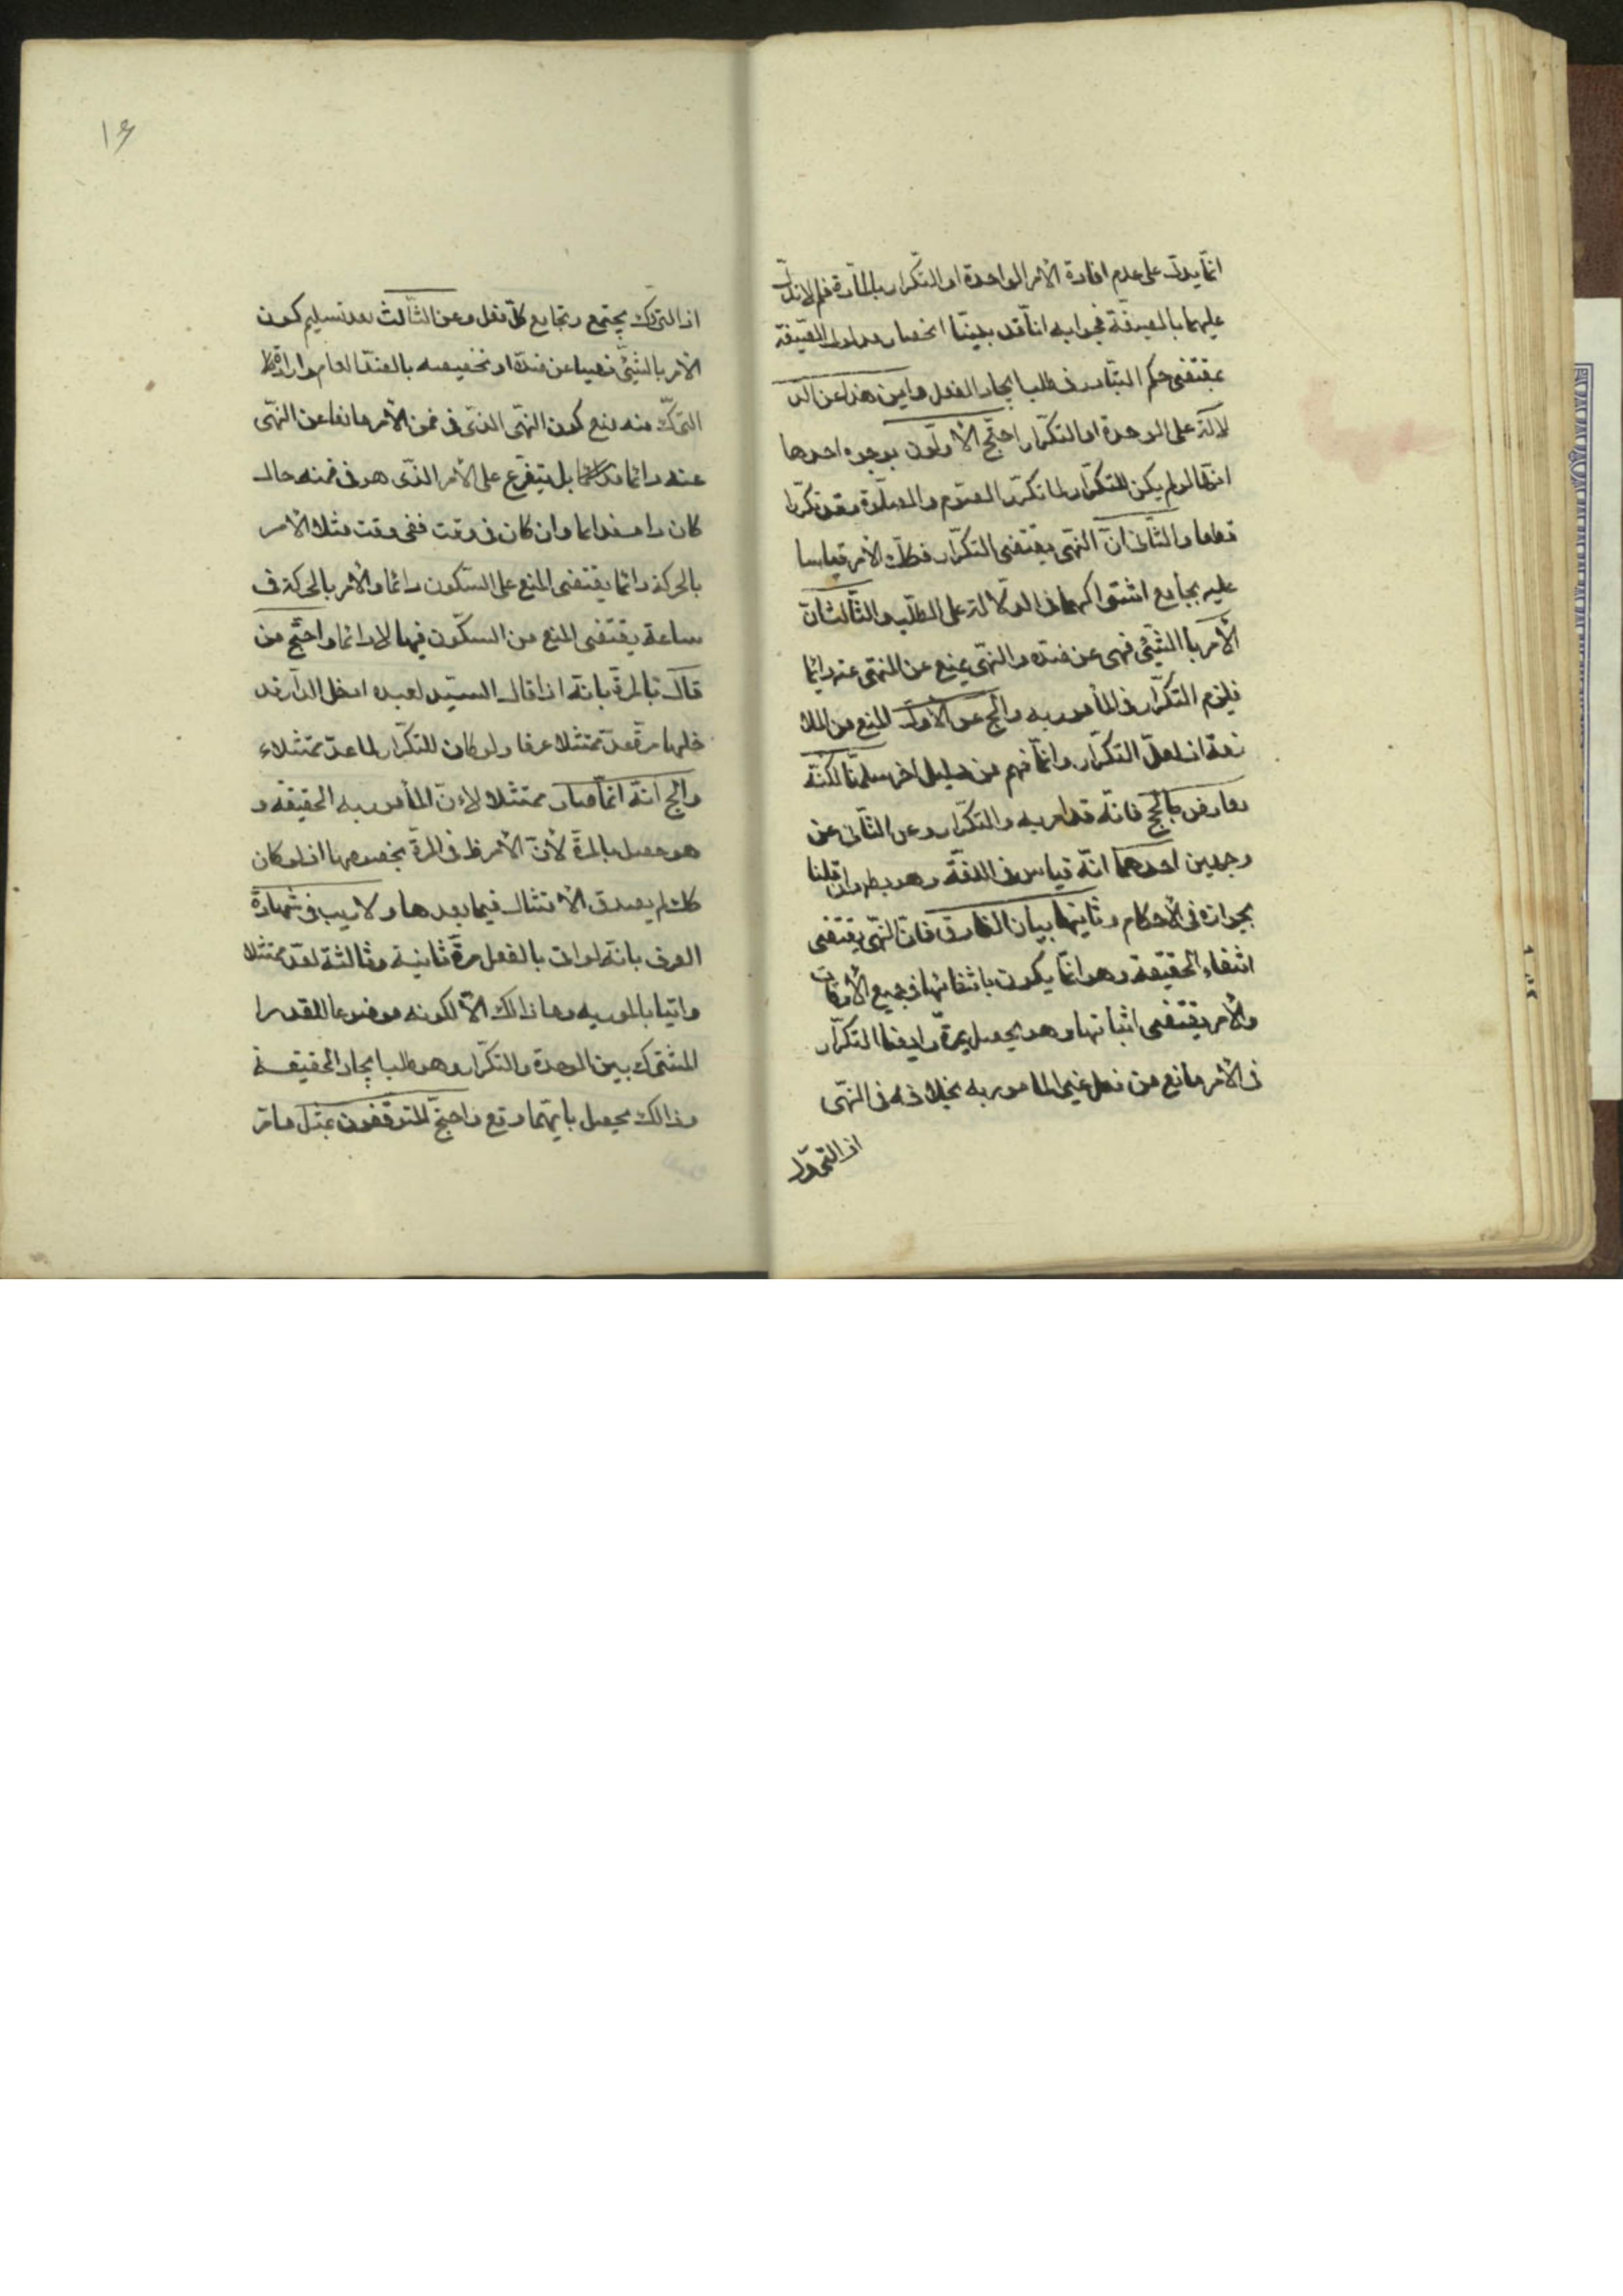 انّما يدلّ على عدم افادة الأمر الواحدة او التّكرار بالمادّة فلم لا تدلّ
عليهما بالصيغة فجوابه انّا قد بيّنّا انحصار مدلول الصّيغة
بمقتضى حكم التبادر فى طلب ايجاد الفعل و اين هذا عن الد
لالة على الوحدة او التكرّار احتّج الأوّلون بوجوه احدها
انّه لو لم يكن للتكرّار لما تكرّر الصّوم و الصلوة و قد تكرّرا
قطعا و الثّانى انّ النهى يقتضى التكرّار فكك الأمر قياسا
عليه بجامع اشتراكهما فى الدّلالة على الطلب و الثّالث انّ
الأمر باالشيّئى نهى عن ضدّه و النهّى يمنع عن المنهّى عنه دائما
فيلزم التكرّار فى المأمور به و الج عن الأوّل المنع من الملا
زمة اذ لعلّ التكرّار و انّما فهم من دليل اخر سلمنّا لكنّه
معارض بالحجّ فانّه قد امر به و التكرّار و عن الثّانى من
وجهين احدهما انّه قياس فى اللغّة و هو بط و ان قلنا
بجوازه فى الأحكام و ثانيهما بيان الفارق فانّ النهّى يقتضى
انتفاء الحقيقة و هو انّما يكون بانتفائها فى جميع الأوقات
و الأمر يقتضى اثباتها و هو يحصل بمرّة و ايضا التكرّار
فى الأمر مانع من فعل غير المامور به بخلافه فى النهّى
اذ التروك
١٦
اذ التروك يجتمع و تجامع كلّ فعل و عن الثّالث بعد تسليم كون
الأمر بالشيئّ نهيا عن ضدّه او تخصيصه بالضدّ العام و ارادة
التّرك منه منع كون النهّى الذّى فى ضمن الأمر مانعا عن النهّى
عنه دائما بل يتفرّع على الأمر الذّى هو فى ضمنه حال
كان دائما و ان كان فى وقت ففى وقت مثلا الأمر
بالحركة دائما يقتضى المنع على السّكون دائما و الأمر بالحركة فى
ساعة يقتضى المنع من السكّون فيها لا دائما و احتّج من
قال بالمرة بانّه اذا قال السيّد لعبده ادخل الدّار فد
خلها مرة عدّ ممتثلا عرفا و لو كان للتكرّار لما عدّ ممتثلاء
و الج انّه انّما صار ممتثلا لأنّ المأمور به الحقيقة و
هو حصل بالمرة لأنّ الأمر ظ فى المرة بخصوصها اذ لو كان
كك لم يصدق الأمتثال فيما بعدها و لا ريب فى شهادة
العرف بانّه لو اتى بالفعل مرّة ثانية و ثالثة لعدّ ممتثلا
و اتيا بالمور به و ما ذالك الأّ لكونه موضوعا للقدر ا
المشترك بين الوحدة و التكرّار و هو طلب ايجاد الحقيقة
و ذالك يحصل بايّهما وقع و احتجّ المتوقفّون بمثل مامّر